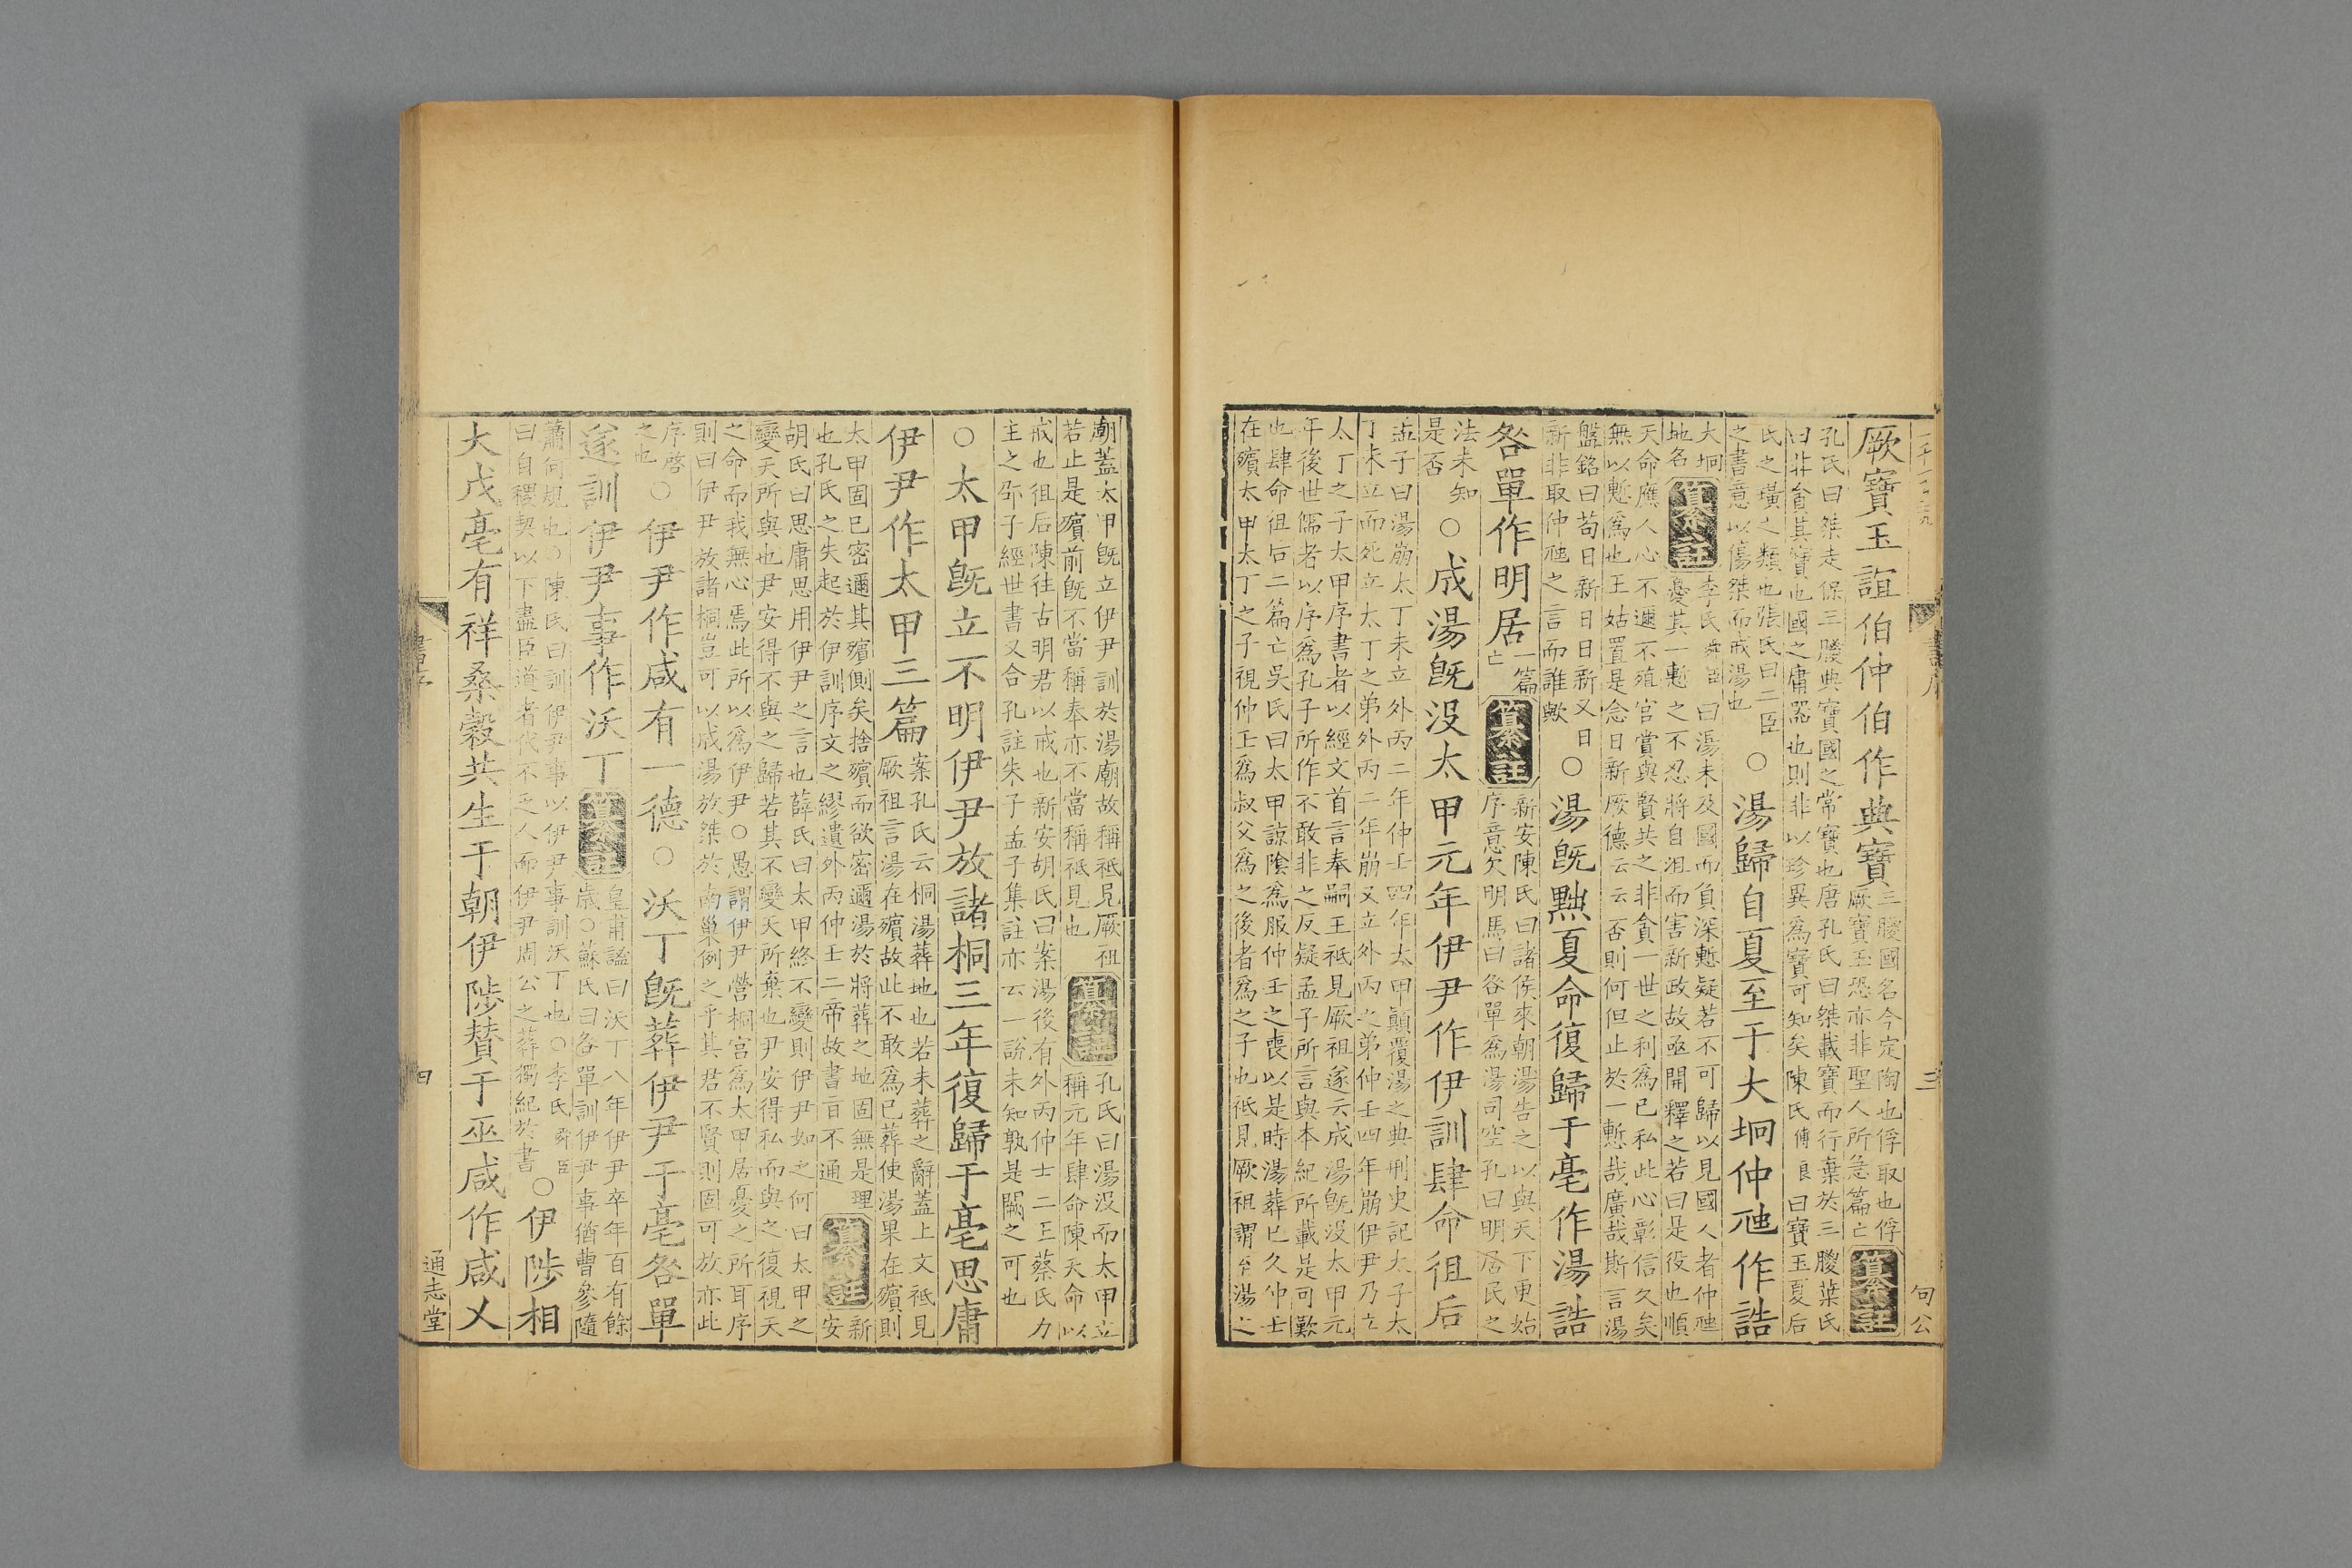 厥寶玉誼伯仲伯作典寶三朡國名今定陶也俘取也俘
厥寶玉恐亦非聖人所急篇亡纂註
孔氏曰桀走保三朡典寶國之常寶也唐孔氏曰桀載寶而行棄於三朡葉氏
曰非貪其寶也國之庸器也則非以珍異爲寶可知矣陳氏傅良曰寶玉夏后
氏之璜之類也張氏曰二臣
之書意以傷桀而戒湯也
○湯歸自夏至于大坰仲虺作誥
大坰
地名
纂註
李氏舜臣曰湯未及國而負深慙疑若不可歸以見國人者仲虺
憂其一慙之不忍將自沮而害新政故亟開釋之若曰是役也順
天命應人心不邇不殖官賞與賢共之非貪一世之利爲已私此心彰信久矣
無以慙爲也王姑置是念日新厥德云云否則何但止於一慙哉廣哉斯言湯
盤銘曰苟日新日日新又日
新非取仲虺之言而誰歟
○湯旣黜夏命復歸于亳作湯誥
咎單作明居一篇
亡
纂註
新安陳氏曰諸侯來朝湯告之以與天下更始
序意欠明馬曰咎單爲湯司空孔曰明居民之
法未知
是否
○成湯旣沒太甲元年伊尹作伊訓肆命徂后
孟子曰湯崩太丁未立外丙二年仲壬四年太甲顚覆湯之典刑史記太子太
丁未立而死立太丁之弟外丙二年崩又立外丙之弟仲壬四年崩伊尹乃立
太丁之子太甲序書者以經文首言奉嗣王祗見厥祖遂云成湯旣沒太甲元
年後世儒者以序爲孔子所作不敢非之反疑孟子所言與本紀所載是可歎
也肆命徂后二篇亡吳氏曰太甲諒陰爲服仲壬之喪以是時湯葬已久仲壬
在殯太甲太丁之子視仲壬爲叔父爲之後者爲之子也祗見厥祖謂至湯之
書序
三
句公
廟蓋太甲旣立伊尹訓於湯廟故稱祗見厥祖
若止是殯前旣不當稱奉亦不當稱祗見也
纂註
孔氏曰湯沒而太甲立
稱元年肆命陳天命以
戒也徂后陳往古明君以戒也新安胡氏曰案湯後有外丙仲士二王蔡氏力
主之邵子經世書又合孔註朱子孟子集註亦云一說未知孰是闕之可也
○太甲旣立不明伊尹放諸桐三年復歸于亳思庸
伊尹作太甲三篇案孔氏云桐湯葬地也若未葬之辭蓋上文祗見
厥祖言湯在殯故此不敢爲已葬使湯果在殯則
太甲固已密邇其殯側矣捨殯而欲密邇湯於將葬之地固無是理
也孔氏之失起於伊訓序文之繆遺外丙仲壬二帝故書㫖不通
纂註
新
安
胡氏曰思庸思用伊尹之言也薛氏曰太甲終不變則伊尹如之何曰太甲之
變天所與也尹安得不與之歸若其不變天所棄也尹安得私而與之復視天
之命而我無心焉此所以爲伊尹○愚謂伊尹營桐宮爲太甲居憂之所耳序
則曰伊尹放諸桐豈可以成湯放桀於南巢例之乎其君不賢則固可放亦此
序啓
之也
○伊尹作咸有一德○沃丁旣葬伊尹于亳咎單
遂訓伊尹事作沃丁纂註
皇甫謐曰沃丁八年伊尹卒年百有餘
歲○蘇氏曰咎單訓伊尹事猶曹參隨
蕭何規也○陳氏曰訓伊尹事以伊尹事訓沃丁也○李氏舜臣
曰自稷契以下盡臣道者代不乏人而伊尹周公之葬獨紀於書
○伊陟相
大戊亳有祥桑穀共生于朝伊陟贊于巫咸作咸乂
書序
四
通志堂